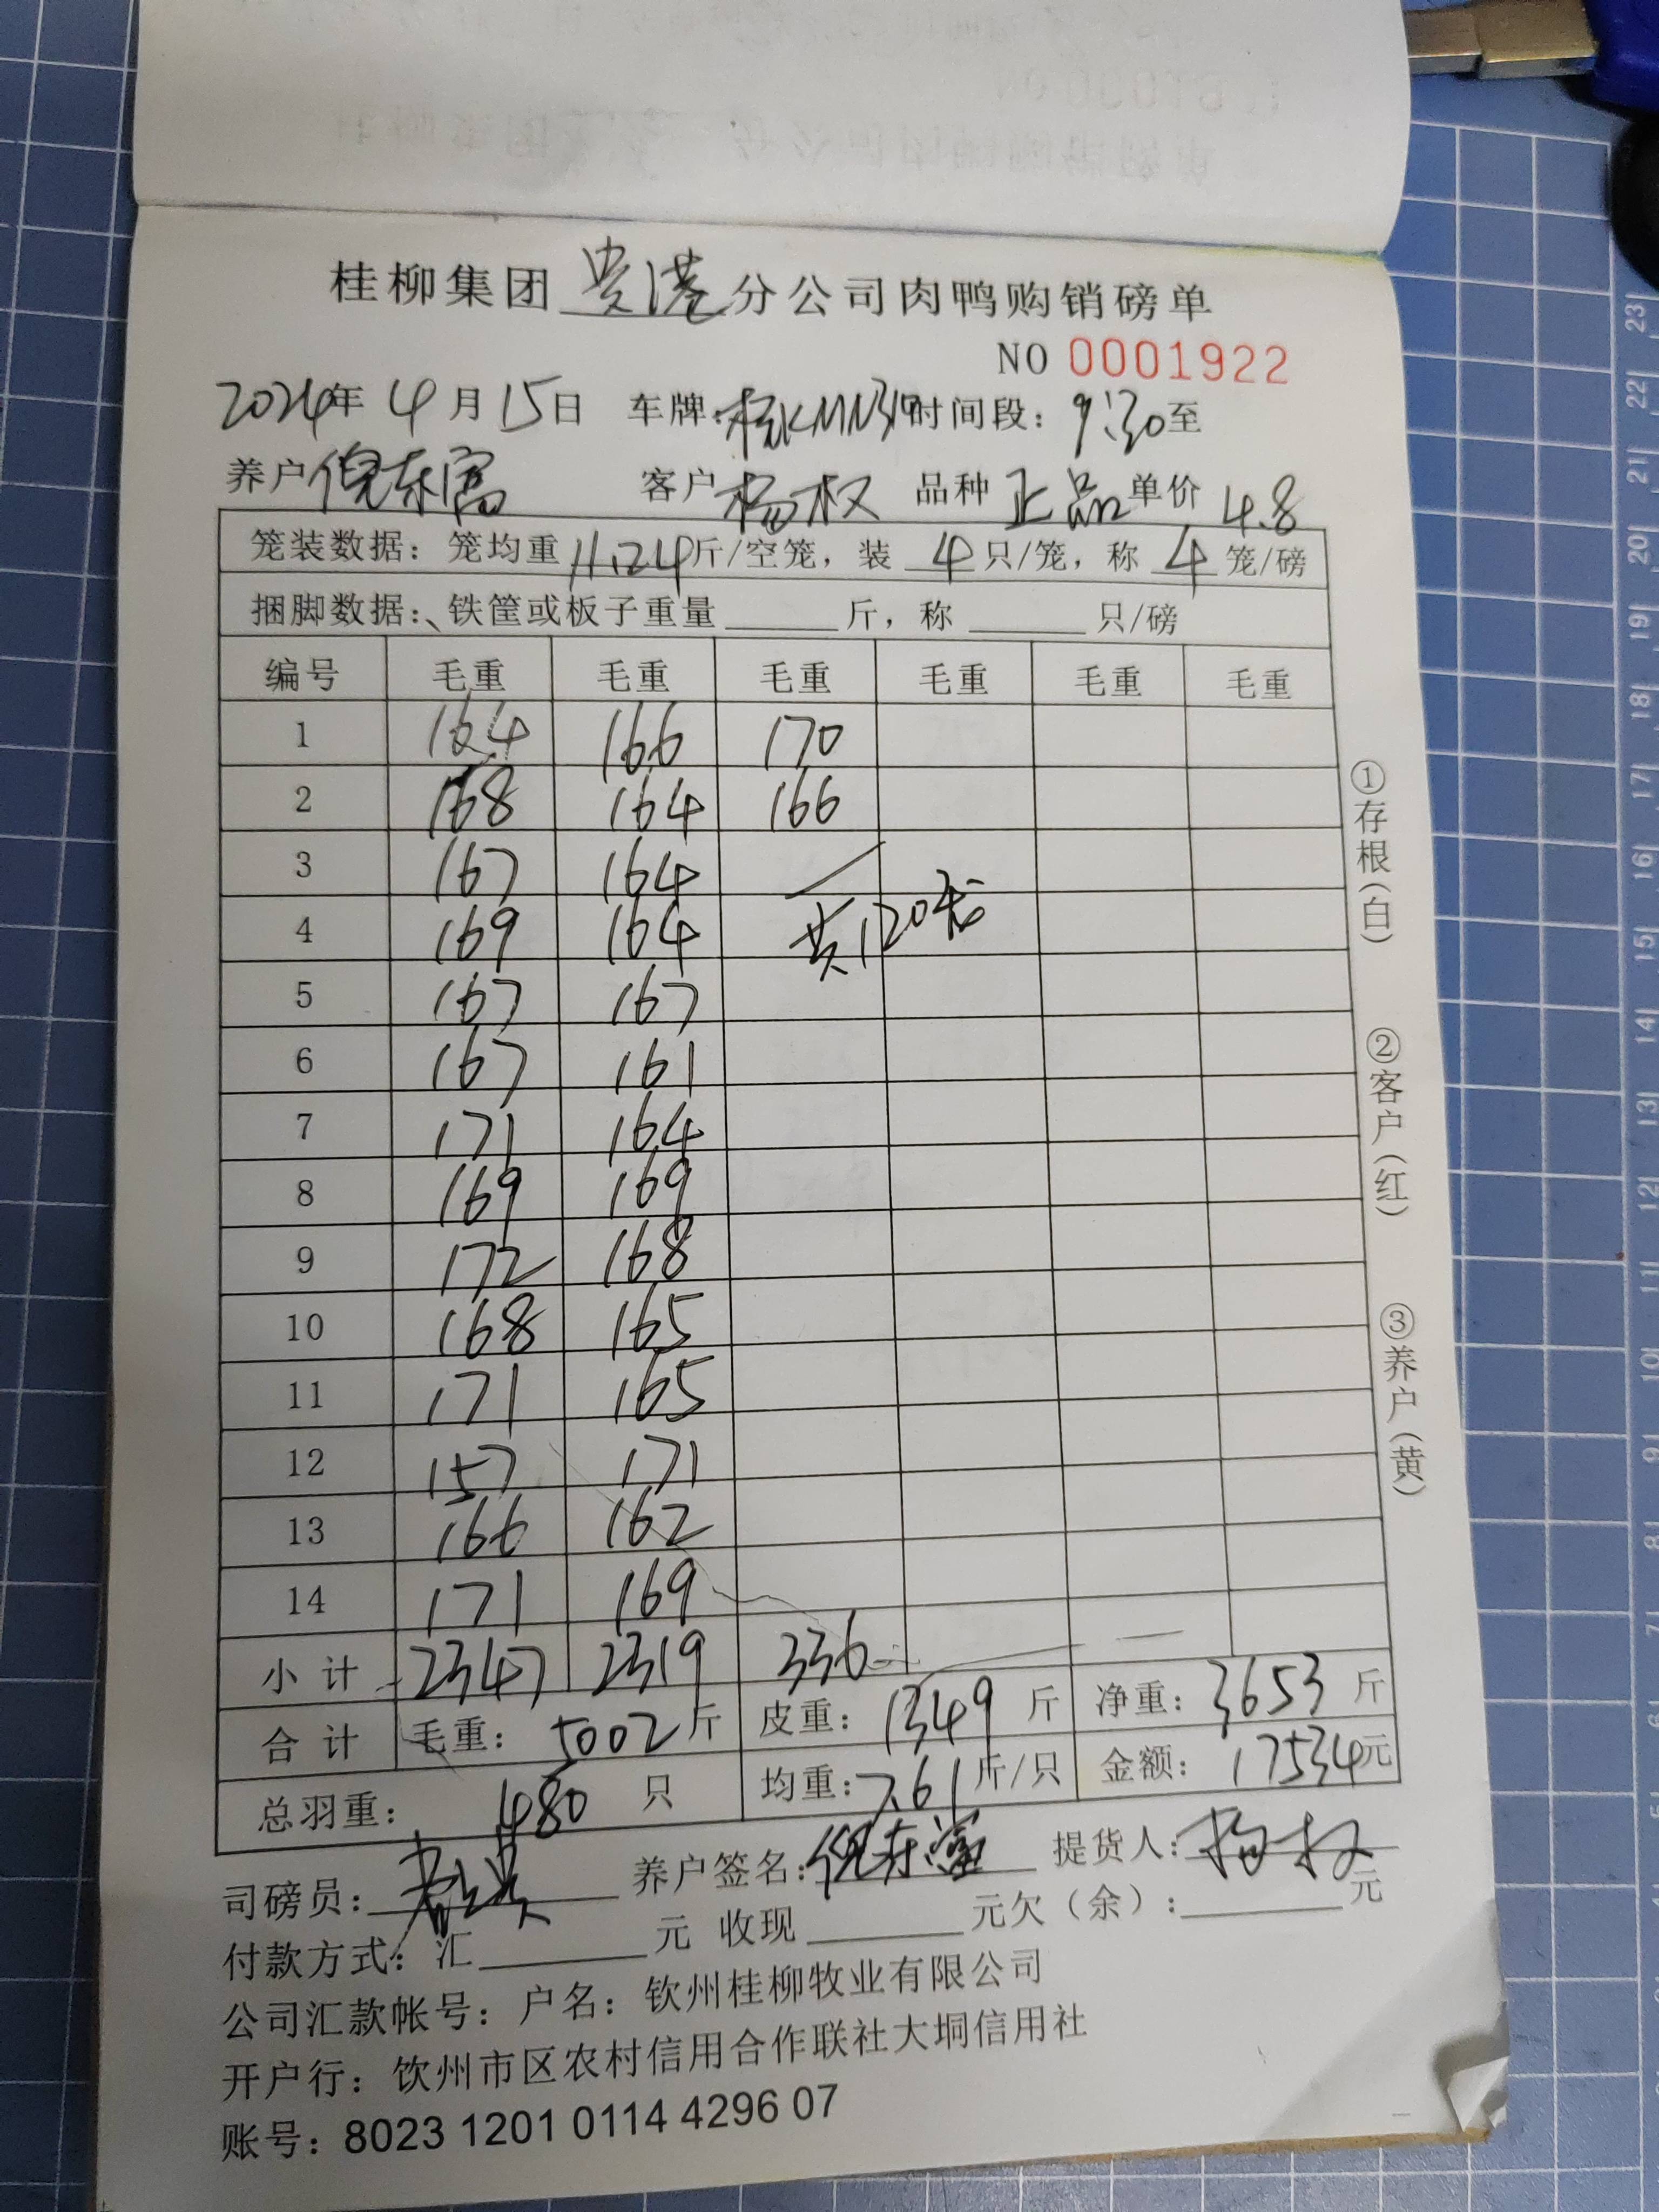 桂柳集团 贵港 分公司肉鸭购销磅单
NO 0001922
2024年 4月 15日 车牌: 桂KMN319 时间段: 9:30至
养户 倪东富 客户 杨权 品种 正品 单价 4.8
笼装数据: 笼均重 11.24 斤/空笼, 装 4 只/笼, 称 4 笼/磅
捆脚数据: 铁筐或板子重量 斤, 称 只/磅
编号 毛重 毛重 毛重 毛重 毛重 毛重
1 164 166 170
2 168 164 166
3 167 164
4 169 164 共120笼
5 167 167
6 167 161
7 171 164
8 169 169
9 172 168
10 168 165
11 171 165
12 157 171
13 166 162
14 171 169
小计 2347 2319 336
合计 毛重: 5002 斤 皮重: 1349 斤 净重: 3653 斤
总羽重: 480 只 均重: 7.61 斤/只 金额: 17534元
司磅员: 养户签名: 倪东富 提货人: 杨权
付款方式: 汇 元 收现 元欠(余): 元
公司汇款帐号: 户名: 钦州桂柳牧业有限公司
开户行: 钦州市区农村信用合作联社大垌信用社
账号: 8023 1201 0114 4296 07
①存根(白)
②客户(红)
③养户(黄)
23
22
21
20
19
18
17
16
15
14
13
12
11
10
9
8
7
6
5